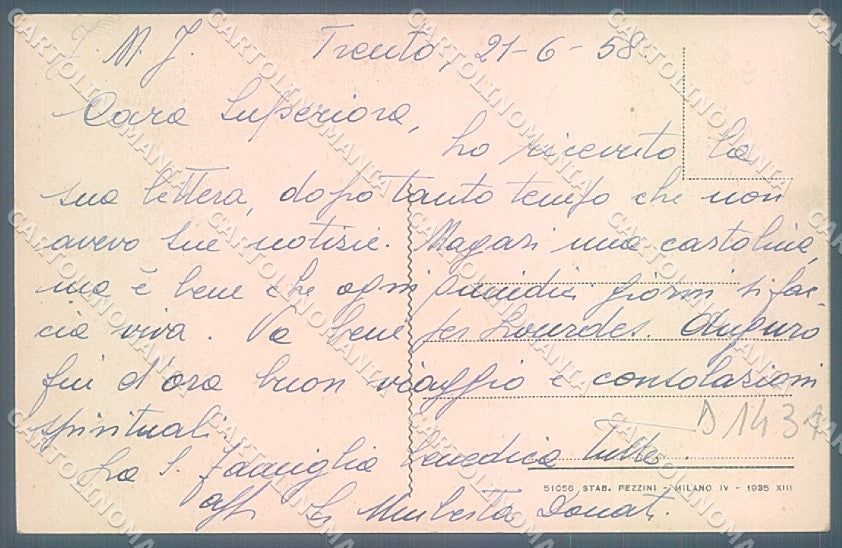 J. M. J. Trento, 21-6-58
Cara Superiora,
ho ricevuto la
sua lettera, dopo tanto tempo che non
avevo sue notizie. Magari una cartolina,
ma è bene che ogni quindici giorni si fac-
cia viva. Va bene per Lourdes. Auguro
fin d'ora buon viaggio e consolazioni
spirituali.
La S. Famiglia benedica tutte.
aff. Umberta Donati.
D 1431
51056 STAB. PEZZINI - MILANO IV - 1935 XIII
CARTOLINOMANIA